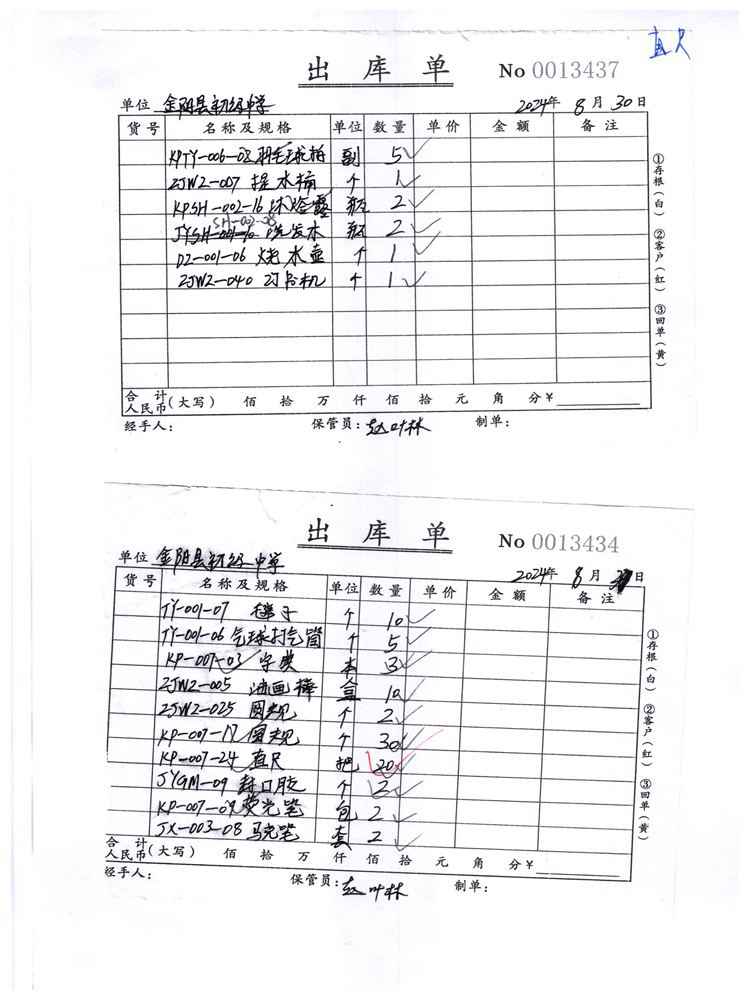 直尺
出库单 No 0013437
单位 金阴县初级中学 2024年 8月 30日
货号 名称及规格 单位 数量 单价 金额 备注
KPTY-006-08 羽毛球拍 副 5
ZJWZ-007 提水桶 个 1
KPSH-002-16 沐浴露 瓶 2
SH-002-08
JYSH-001-10 洗发水 瓶 2
DZ-001-06 烧水壶 个 1
ZJWZ-040 订书机 个 1
合计 人民币(大写) 佰 拾 万 仟 佰 拾 元 角 分¥
经手人: 保管员:赵叶林 制单:
①存根(白) ②客户(红) ③回单(黄)
出库单 No 0013434
单位 金阴县初级中学 2024年 8月 日
货号 名称及规格 单位 数量 单价 金额 备注
TY-001-07 毽子 个 10
TY-001-06 气球打气筒 个 5
KP-007-03 字典 本 3
ZJWZ-005 油画棒 盒 10
ZJWZ-025 圆规 个 2
KP-007-17 圆规 个 30
KP-007-24 直尺 把 20
JYGM-09 封口胶 个 2
KP-007-09 荧光笔 包 2
JX-003-08 马克笔 套 2
合计 人民币(大写) 佰 拾 万 仟 佰 拾 元 角 分¥
经手人: 保管员:赵叶林 制单:
①存根(白) ②客户(红) ③回单(黄)